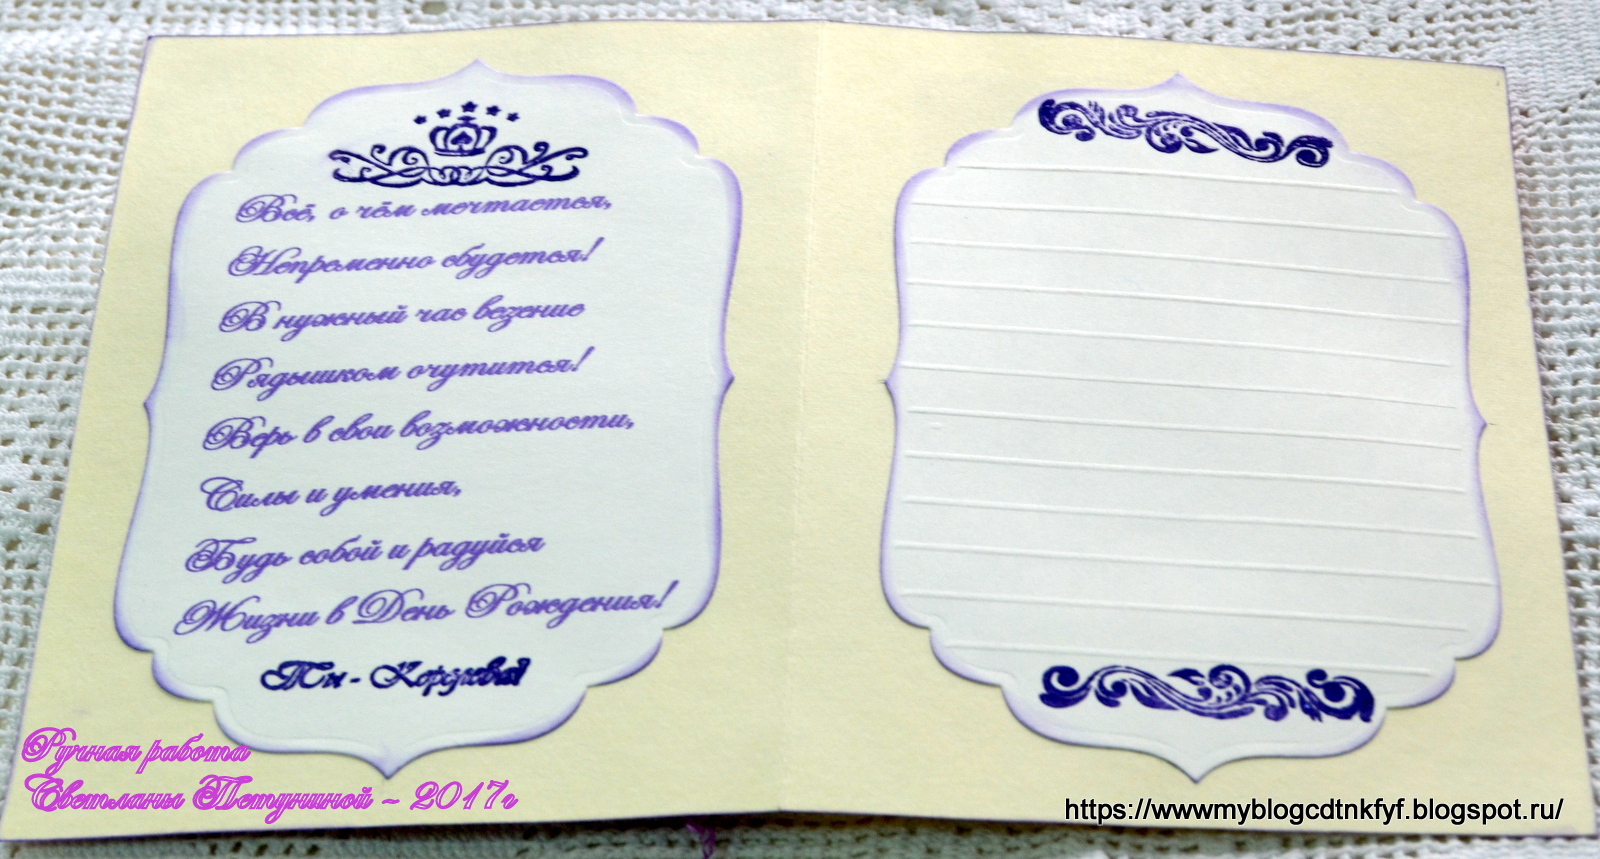 Всё, о чём мечтается,
Непременно сбудется!
В нужный час везение
Рядышком очутится!
Верь в свои возможности,
Силы и умения,
Будь собой и радуйся
Жизни в День Рождения!
Ты - Королева!
Ручная работа
Светланы Петуниной ~ 2017г
https://wwwmyblogcdtnkfyf.blogspot.ru/